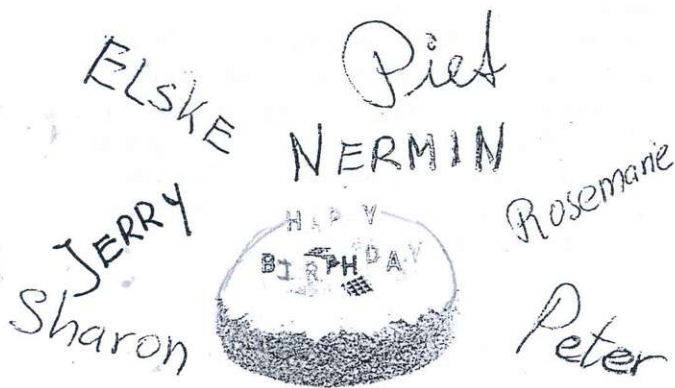 ELSKE
Piet
NERMIN
Rosemarie
JERRY
HAPPY
BIRTHDAY
Sharon
Peter